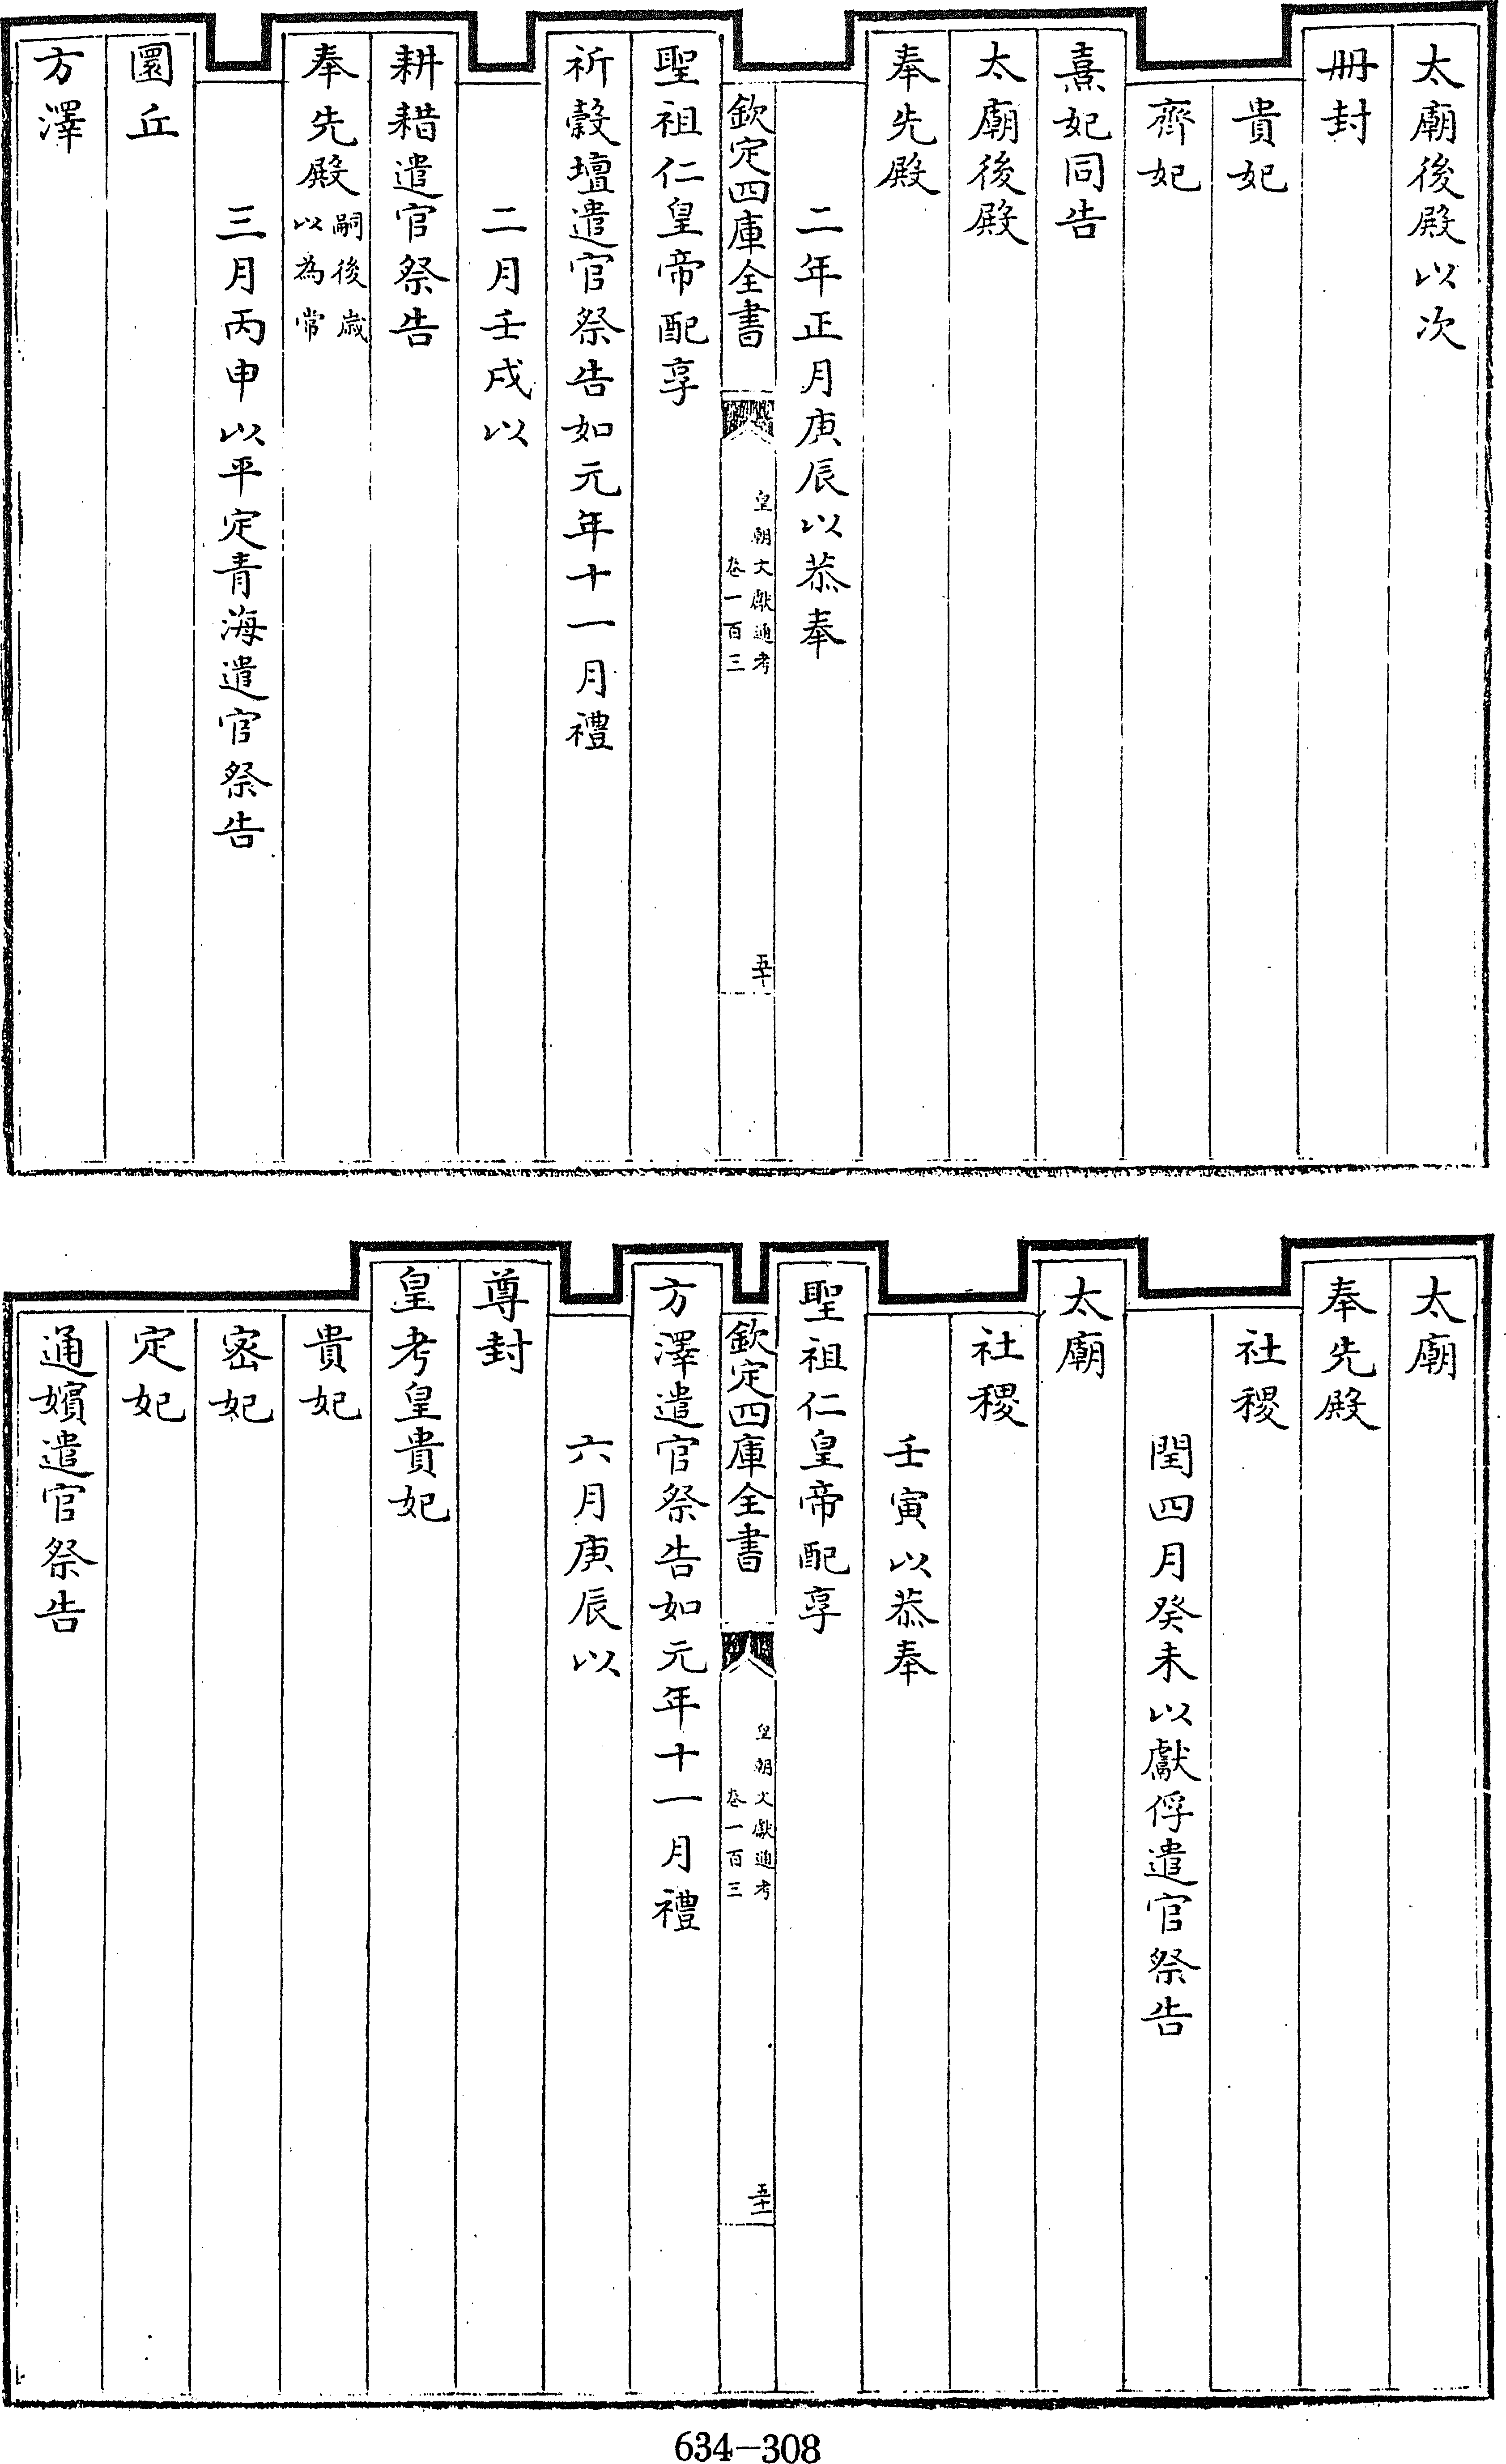 太廟後殿以次
冊封
貴妃
齊妃
熹妃同告
太廟後殿
奉先殿
二年正月庚辰以恭奉
欽定四庫全書
皇朝文獻通考
卷一百三
五十
聖祖仁皇帝配享
祈穀壇遣官祭告如元年十一月禮
二月壬戌以
耕耤遣官祭告
奉先殿嗣後歲以為常
三月丙申以平定青海遣官祭告
圜丘
方澤
太廟
奉先殿
社稷
閏四月癸未以獻俘遣官祭告
太廟
社稷
壬寅以恭奉
聖祖仁皇帝配享
欽定四庫全書
皇朝文獻通考
卷一百三
五十一
方澤遣官祭告如元年十一月禮
六月庚辰以
尊封
皇考皇貴妃
貴妃
密妃
定妃
通嬪遣官祭告
634-308